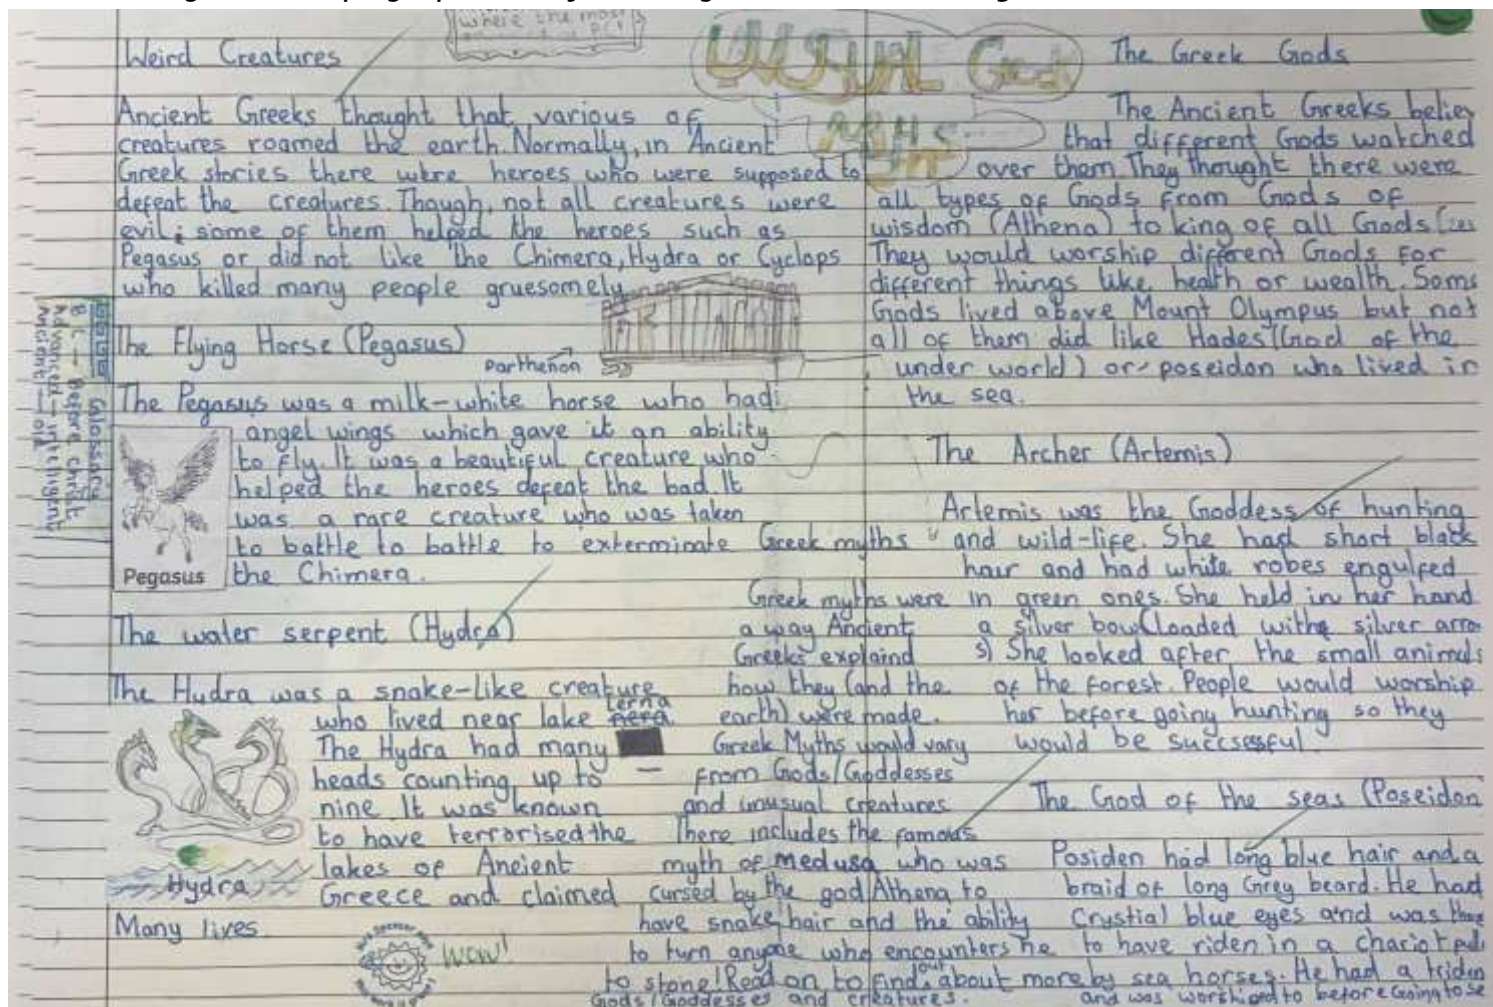 where the most
Weird Creatures
Ancient Greeks thought that various of
creatures roamed the earth. Normally, in Ancient
Greek stories there were heroes who were supposed to
defeat the creatures. Though, not all creatures were
evil; some of them helped the heroes such as
Pegasus or did not like the Chimera, Hydra or Cyclops
who killed many people gruesomely
The Flying Horse (Pegasus)
Parthenon
The Pegasus was a milk-white horse who had
angel wings which gave it an ability
to fly. It was a beautiful creature who
helped the heroes defeat the bad. It
was a rare creature who was taken
to battle to battle to exterminate
the Chimera.
Pegasus
Glossary
B.C → Before Christ
Advanced → intelligent
Ancient → old
The water serpent (Hydra)
The Hydra was a snake-like creature
who lived near lake lerna
The Hydra had many
heads counting up to
nine. It was known
to have terrorised the
lakes of Ancient
Greece and claimed
Many lives.
Hydra
WOW!
Greek myths
Greek myths were
a way Ancient
Greeks explaind
how they (and the
earth) were made.
Greek Myths would vary
from Gods/Goddesses
and unusual creatures
There includes the famous
myth of medusa who was
cursed by the god Athena to
have snake hair and the ability
to turn anyone who encounters he
to stone! Read on to find out about more
Gods/Goddesses and creatures.
The Greek Gods
The Ancient Greeks believ
that different Gods watched
over them They thought there were
all types of Gods from Gods of
wisdom (Athena) to king of all Gods
They would worship different Gods for
different things like health or wealth. Some
Gods lived above Mount Olympus but not
all of them did like Hades (God of the
under world) or poseidon who lived in
the sea.
The Archer (Artemis)
Artemis was the Goddess of hunting
and wild-life. She had short black
hair and had white robes engulfed
in green ones. She held in her hand
a silver bow (loaded withe silver arro
s) She looked after the small animals
of the forest. People would worship
her before going hunting so they
would be succsessful.
The God of the seas (Poseidon
Posiden had long blue hair and a
braid of long Grey beard. He had
Crystial blue eyes and was
to have riden in a chariot pull
by sea horses. He had a triden
and was worshiped to before Going to se